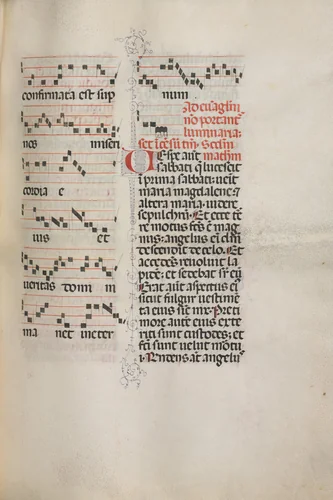 confirmata est sup
nos miseri
cordia e
ius et
ueritas domi ni
ma net ineter
num
Ad euãgliũ
nõ portant
luminaria:
set ĩcẽsũ tm̃. Scdm
Uespe aut̃ matheũ
sabbati q̃ lucescit
ĩ prima sabbati: uẽit
maria magdalene: ⁊
altera maria: uidere
sepulchrũ. Et ecce te
re motus fcs̃ ẽ mag
nus: angelus eĩ dñi
descendit de celo. Et
accedẽs reuoluit la
pidẽ: et sedebat sr̃ eũ
Erat aut̃ aspectus ei⁹
sicut fulgur uestimẽ
ta eius sic̃ nix. Pre ti
more aut̃ eius exte
riti sunt custodes: et
fc̃i sunt uelut mortu
i. Rñdens at̃ angelu⁹